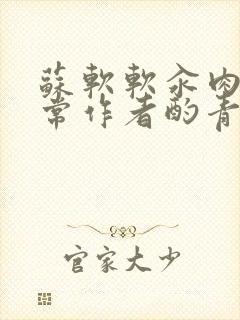 蘇軟軟汆肉日
常作者酌青
官家大少